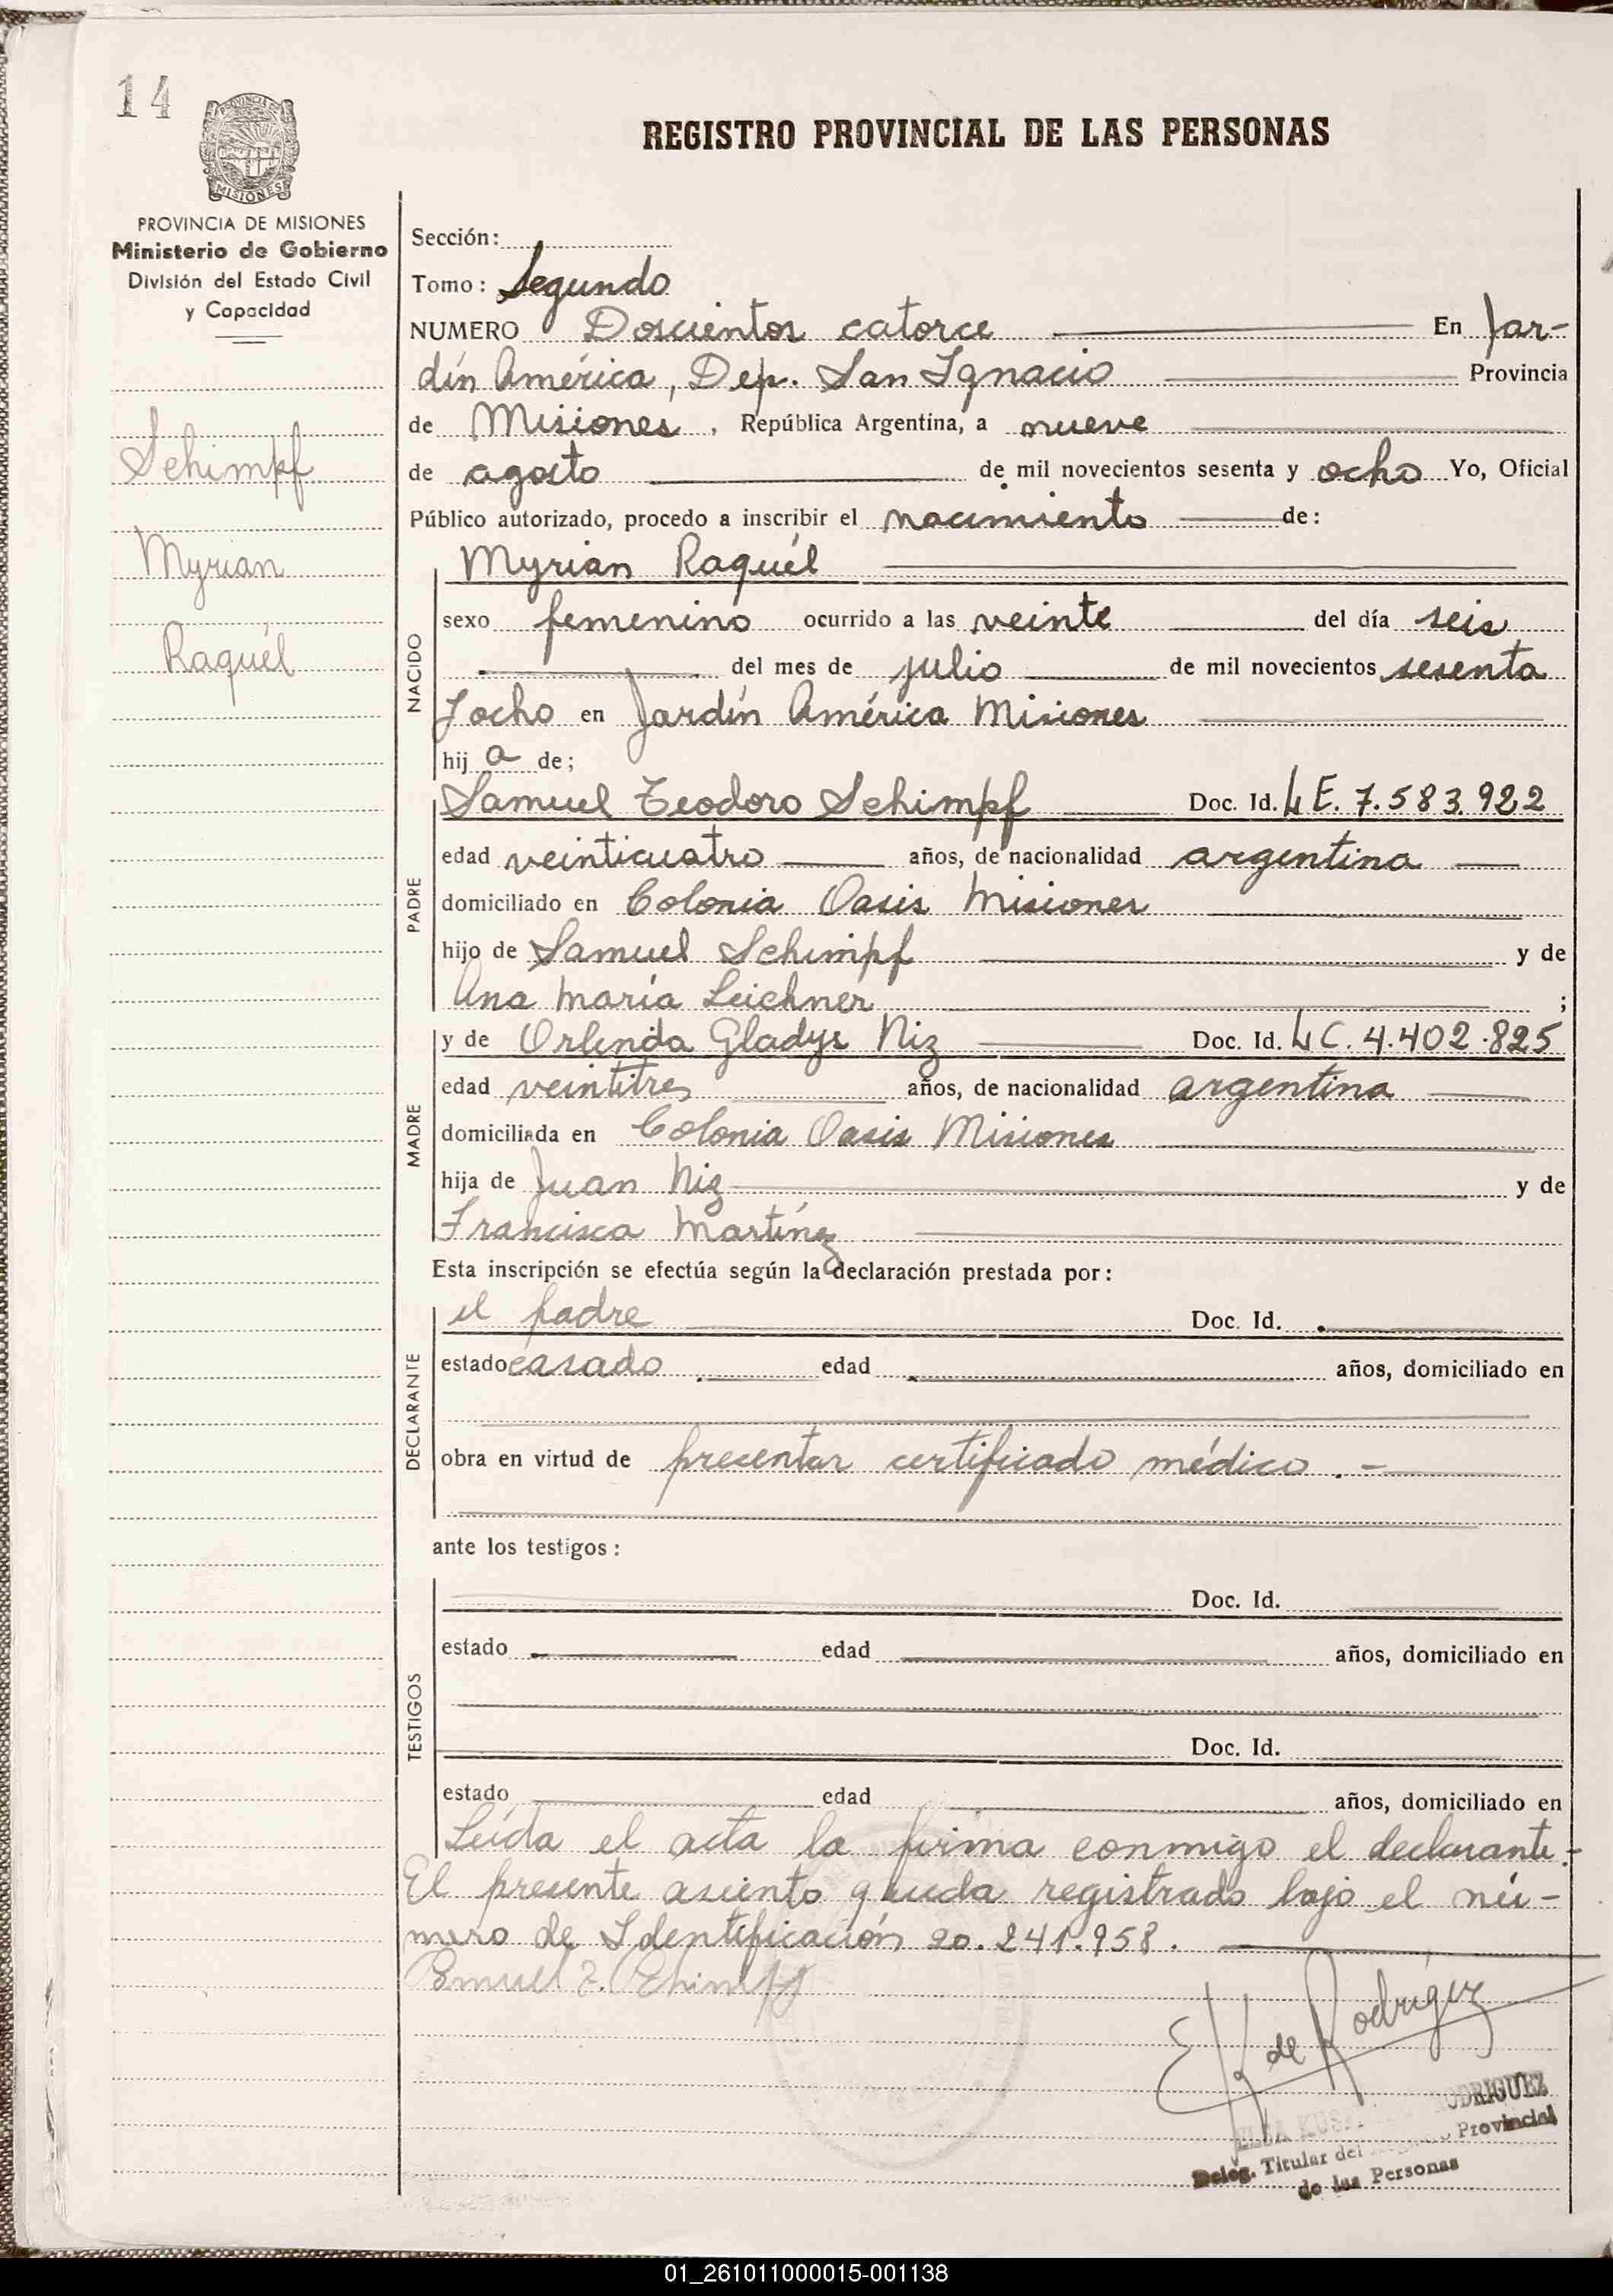 14
PROVINCIA DE
MISIONES
PROVINCIA DE MISIONES
Ministerio de Gobierno
División del Estado Civil
y Capacidad
Schimpf
Myrian
Raquél
REGISTRO PROVINCIAL DE LAS PERSONAS
Sección:
Tomo: Segundo
NUMERO Doscientos catorce En Jar-
dín América, Dep. San Ignacio Provincia
de Misiones, República Argentina, a nueve
de agosto de mil novecientos sesenta y ocho Yo, Oficial
Público autorizado, procedo a inscribir el nacimiento de:
NACIDO
Myrian Raquél
sexo femenino ocurrido a las veinte del día seis
del mes de julio de mil novecientos sesenta
y ocho en Jardín América Misiones
hij a de;
PADRE
Samuel Teodoro Schimpf Doc. Id. LE. 7.583.922
edad veinticuatro años, de nacionalidad argentina
domiciliado en Colonia Oasis Misiones
hijo de Samuel Schimpf y de
Ana María Leichner ;
MADRE
y de Orlenda Gladys Niz Doc. Id. LC. 4.402.825
edad veintitres años, de nacionalidad argentina
domiciliada en Colonia Oasis Misiones
hija de Juan Niz y de
Francisca Martínez
Esta inscripción se efectúa según la declaración prestada por:
DECLARANTE
el padre Doc. Id.
estado casado edad años, domiciliado en
obra en virtud de presentar certificado médico.-
ante los testigos:
TESTIGOS
Doc. Id.
estado edad años, domiciliado en
Doc. Id.
estado edad años, domiciliado en
Leída el acta la firma conmigo el declarante.-
El presente asiento queda registrado bajo el nú-
mero de Identificación 20.241.958.
Samuel T. Schimpf
EK de Rodríguez
ELSA RODRIGUEZ
Deleg. Titular del Provincial
de las Personas
01_261011000015-001138